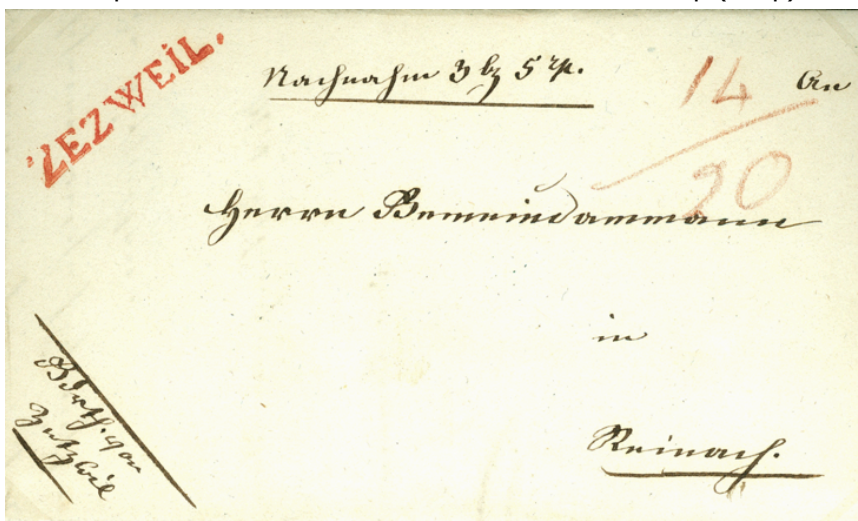 ZEZWEIL.
Nachnahm 3 bz 5 rp.
14
20
An
Herrn Gemeindammann
in
Reinach.
von
Zetzwil